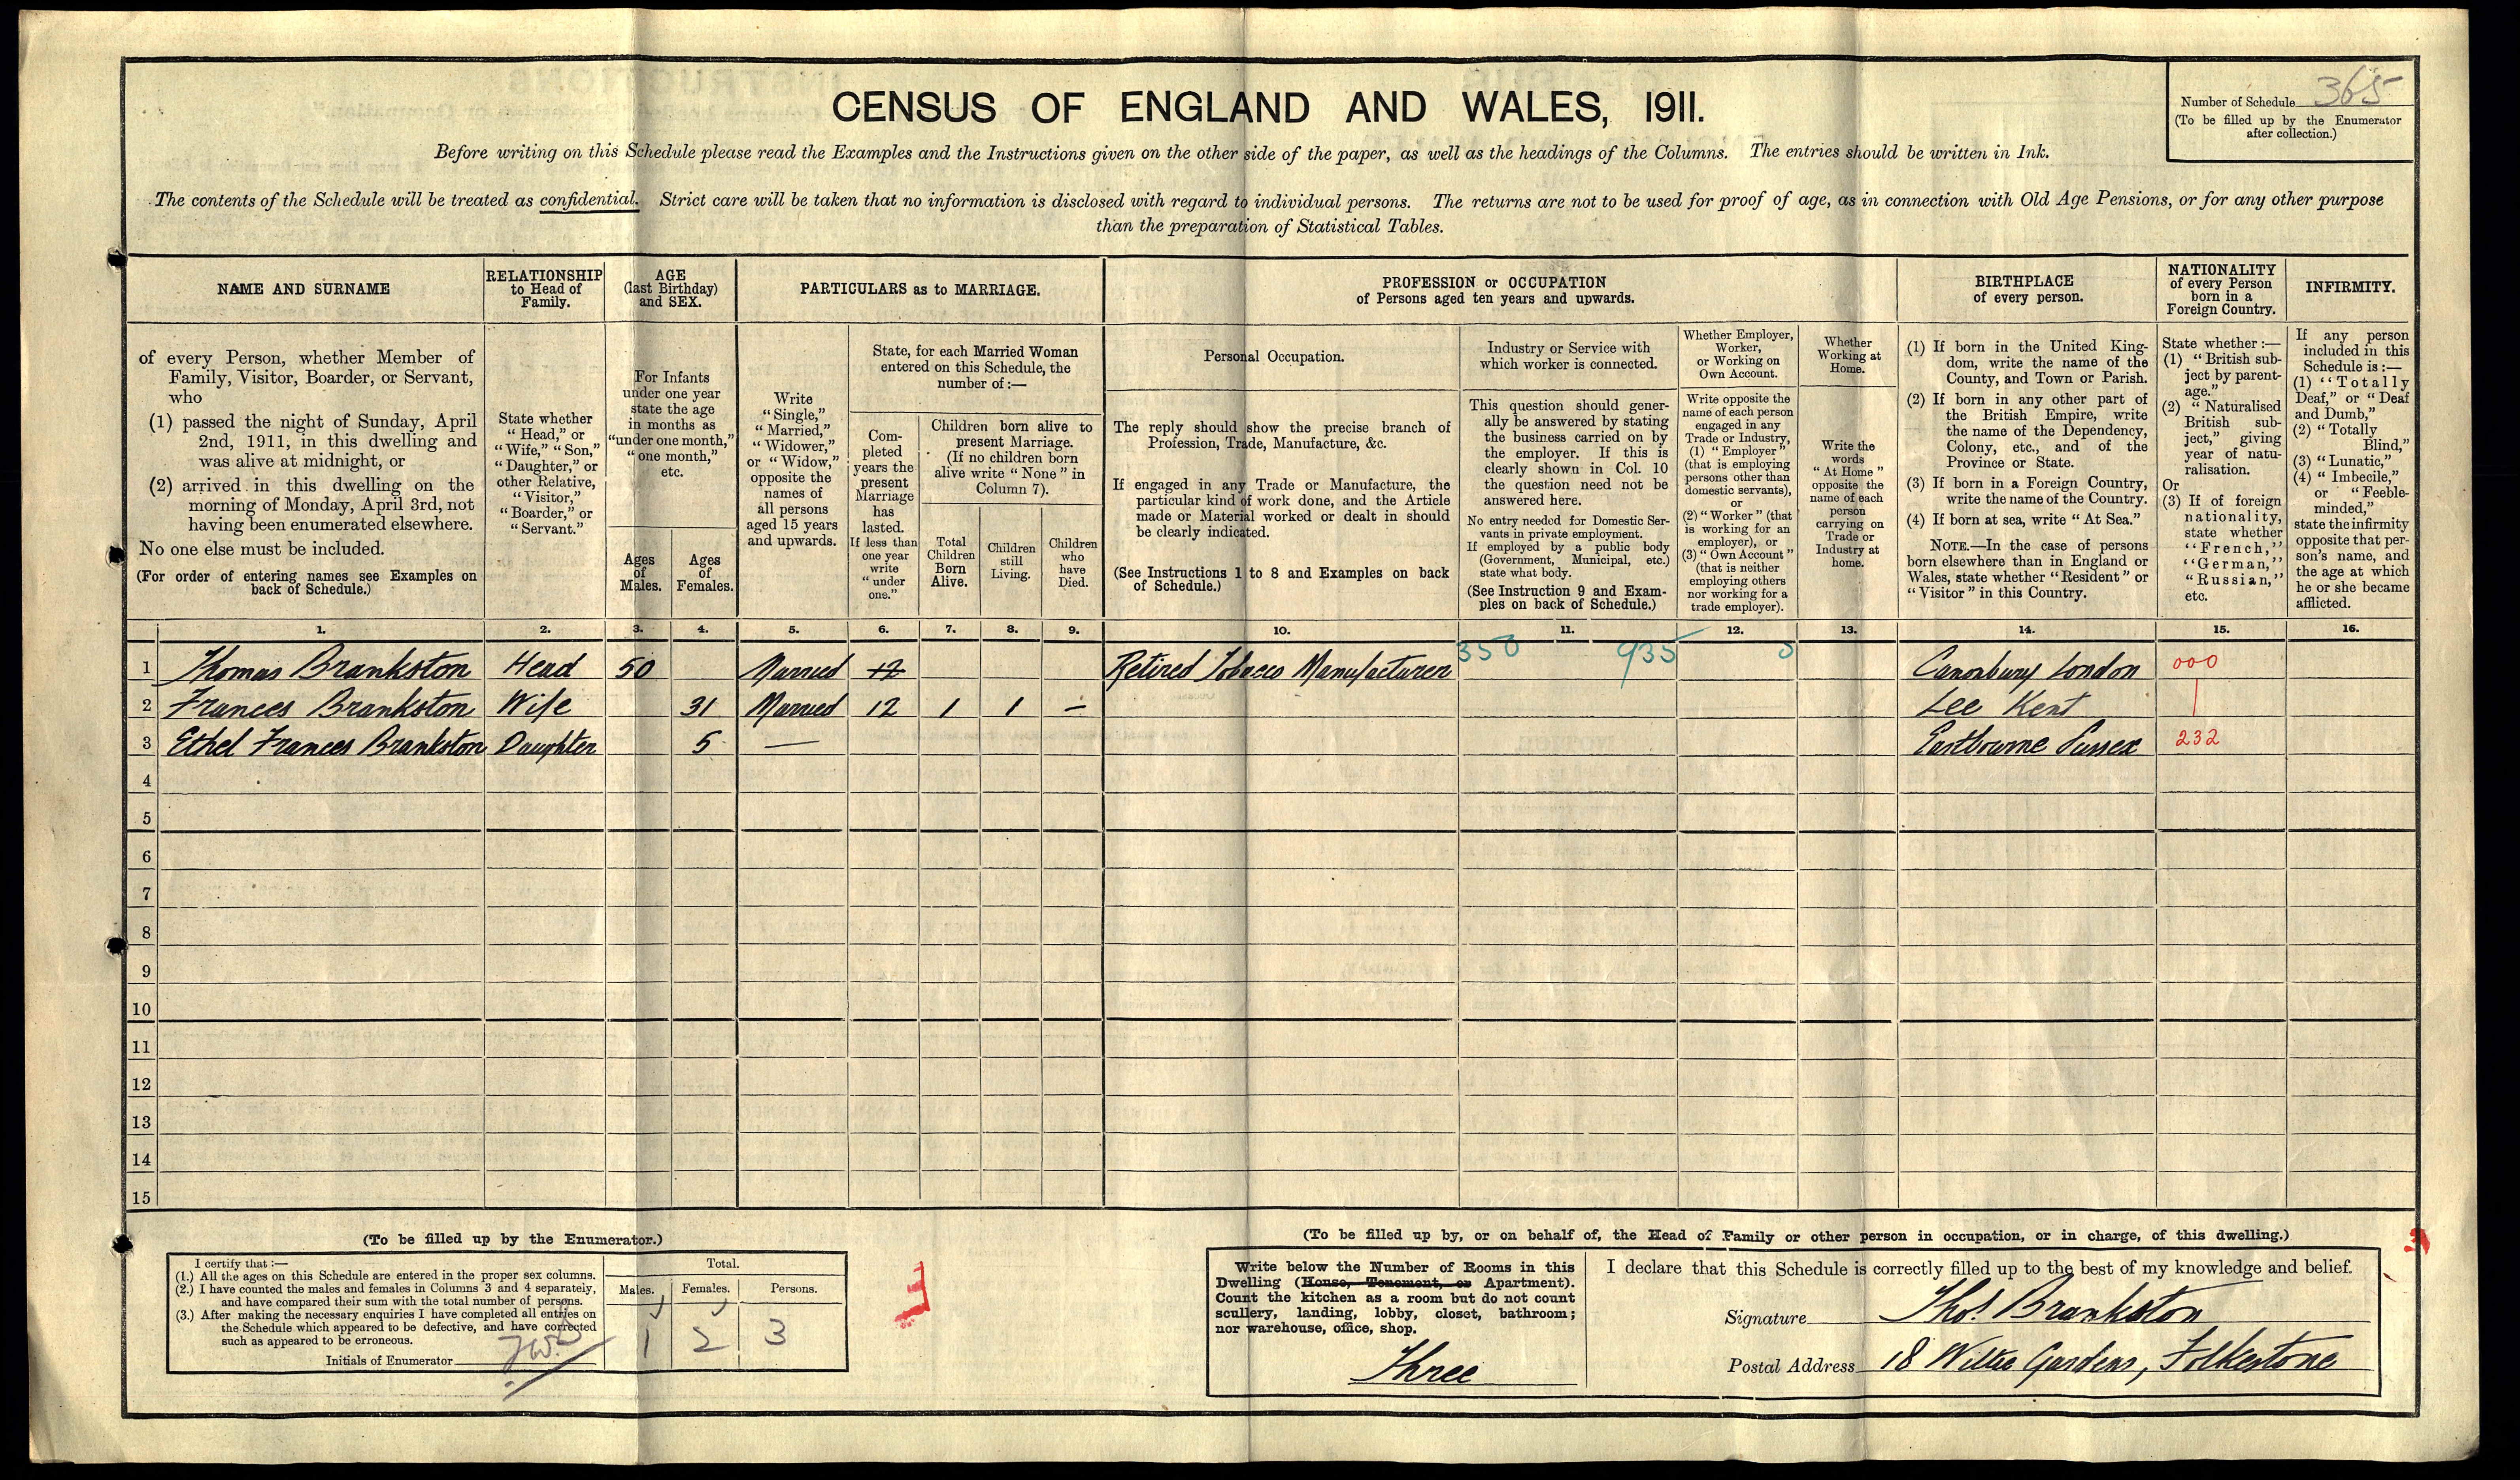 CENSUS OF ENGLAND AND WALES, 1911.
Number of Schedule 365
(To be filled up by the Enumerator
after collection.)
Before writing on this Schedule please read the Examples and the Instructions given on the other side of the paper, as well as the headings of the Columns. The entries should be written in Ink.
The contents of the Schedule will be treated as confidential. Strict care will be taken that no information is disclosed with regard to individual persons. The returns are not to be used for proof of age, as in connection with Old Age Pensions, or for any other purpose
than the preparation of Statistical Tables.
NAME AND SURNAME
of every Person, whether Member of
Family, Visitor, Boarder, or Servant,
who
(1) passed the night of Sunday, April
2nd, 1911, in this dwelling and
was alive at midnight, or
(2) arrived in this dwelling on the
morning of Monday, April 3rd, not
having been enumerated elsewhere.
No one else must be included.
(For order of entering names see Examples on
back of Schedule.)
RELATIONSHIP
to Head of
Family.
State whether
"Head," or
"Wife," "Son,"
"Daughter," or
other Relative,
"Visitor,"
"Boarder," or
"Servant."
AGE
(last Birthday)
and SEX.
For Infants
under one year
state the age
in months as
"under one month,"
"one month,"
etc.
Ages
of
Males.
Ages
of
Females.
PARTICULARS as to MARRIAGE.
Write
"Single,"
"Married,"
"Widower,"
or "Widow,"
opposite the
names of
all persons
aged 15 years
and upwards.
State, for each Married Woman
entered on this Schedule, the
number of:—
Com-
pleted
years the
present
Marriage
has
lasted.
If less than
one year
write
"under
one."
Children born alive to
present Marriage.
(If no children born
alive write "None" in
Column 7).
Total
Children
Born
Alive.
Children
still
Living.
Children
who
have
Died.
PROFESSION or OCCUPATION
of Persons aged ten years and upwards.
Personal Occupation.
The reply should show the precise branch of
Profession, Trade, Manufacture, &c.
If engaged in any Trade or Manufacture, the
particular kind of work done, and the Article
made or Material worked or dealt in should
be clearly indicated.
(See Instructions 1 to 8 and Examples on back
of Schedule.)
Industry or Service with
which worker is connected.
This question should gener-
ally be answered by stating
the business carried on by
the employer. If this is
clearly shown in Col. 10
the question need not be
answered here.
No entry needed for Domestic Ser-
vants in private employment.
If employed by a public body
(Government, Municipal, etc.)
state what body.
(See Instruction 9 and Exam-
ples on back of Schedule.)
Whether Employer,
Worker,
or Working on
Own Account.
Write opposite the
name of each person
engaged in any
Trade or Industry,
(1) "Employer"
(that is employing
persons other than
domestic servants),
or
(2) "Worker" (that
is working for an
employer), or
(3) "Own Account"
(that is neither
employing others
nor working for a
trade employer).
Whether
Working at
Home.
Write the
words
"At Home"
opposite the
name of each
person
carrying on
Trade or
Industry at
home.
BIRTHPLACE
of every person.
(1) If born in the United King-
dom, write the name of the
County, and Town or Parish.
(2) If born in any other part of
the British Empire, write
the name of the Dependency,
Colony, etc., and of the
Province or State.
(3) If born in a Foreign Country,
write the name of the Country.
(4) If born at sea, write "At Sea."
NOTE.—In the case of persons
born elsewhere than in England or
Wales, state whether "Resident" or
"Visitor" in this Country.
NATIONALITY
of every Person
born in a
Foreign Country.
State whether :—
(1) "British sub-
ject by parent-
age."
(2) "Naturalised
British sub-
ject," giving
year of natu-
ralisation.
Or
(3) If of foreign
nationality,
state whether
"French,"
"German,"
"Russian,"
etc.
INFIRMITY.
If any person
included in this
Schedule is:—
(1) "Totally
Deaf," or "Deaf
and Dumb,"
(2) "Totally
Blind,"
(3) "Lunatic,"
(4) "Imbecile,"
or "Feeble-
minded,"
state the infirmity
opposite that per-
son's name, and
the age at which
he or she became
afflicted.
1. 2. 3. 4. 5. 6. 7. 8. 9. 10. 11. 12. 13. 14. 15. 16.
1 Thomas Brankston Head 50 Married 12 Retired Tobacco Manufacturer 350 935 0 Canonbury London 000
2 Frances Brankston Wife 31 Married 12 1 1 – Lee Kent |
3 Ethel Frances Brankston Daughter 5 — Eastbourne Sussex 232
4
5
6
7
8
9
10
11
12
13
14
15
(To be filled up by the Enumerator.)
I certify that :—
(1.) All the ages on this Schedule are entered in the proper sex columns.
(2.) I have counted the males and females in Columns 3 and 4 separately,
and have compared their sum with the total number of persons.
(3.) After making the necessary enquiries I have completed all entries on
the Schedule which appeared to be defective, and have corrected
such as appeared to be erroneous.
Initials of Enumerator
Total.
Males. Females. Persons.
1 2 3
(To be filled up by, or on behalf of, the Head of Family or other person in occupation, or in charge, of this dwelling.)
Write below the Number of Rooms in this
Dwelling (House, Tenement, or Apartment).
Count the kitchen as a room but do not count
scullery, landing, lobby, closet, bathroom;
nor warehouse, office, shop.
Three
I declare that this Schedule is correctly filled up to the best of my knowledge and belief.
Signature Thos. Brankston
Postal Address 18 Gardens, Folkestone